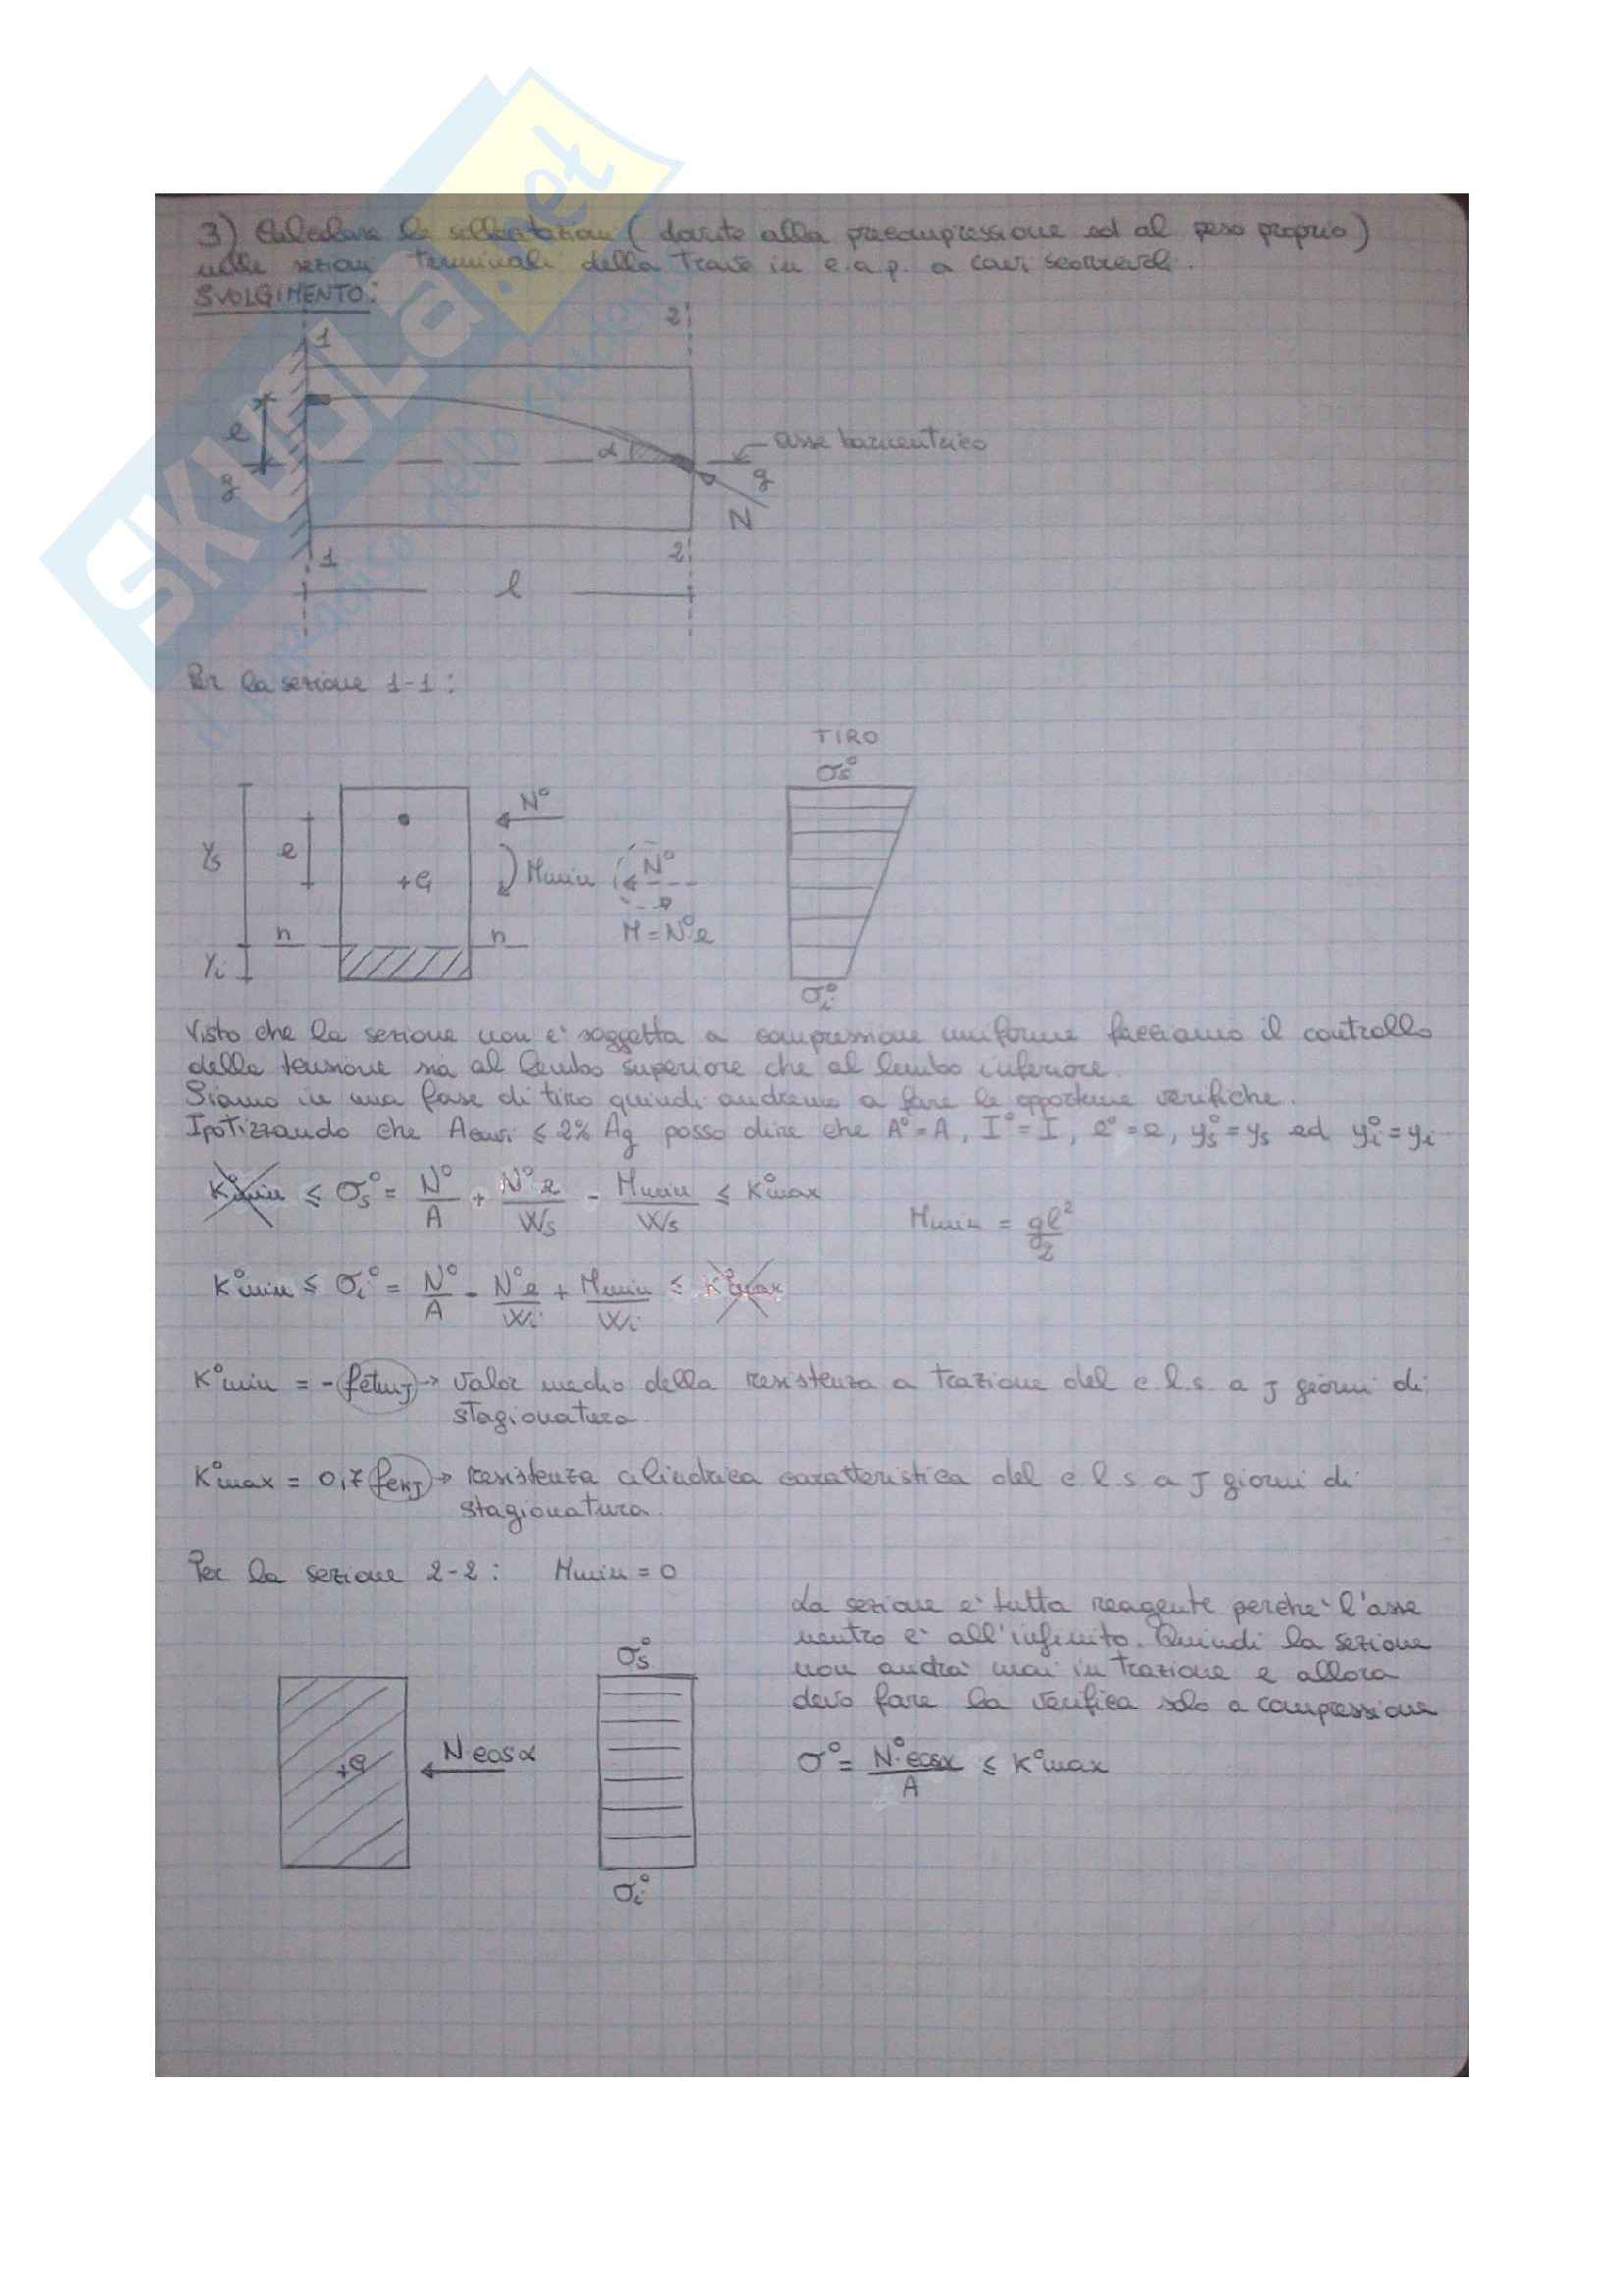 3) Calcolare le sollecitazioni (dovute alla precompressione ed al peso proprio)
nelle sezioni terminali della trave in c.a.p. a cavi scorrevoli.
SVOLGIMENTO:
SKUOLA.net
1
2
e
g
α
asse baricentrico
g
N
1
2
l
Per la sezione 1-1:
TIRO
σs°
N°
ys
e
+G
Mmin
N°
M=N°e
n
n
yi
σi°
Visto che la sezione non e' soggetta a compressione uniforme facciamo il controllo
della tensione sia al lembo superiore che al lembo inferiore.
Siamo in una fase di tiro quindi andremo a fare le opportune verifiche.
Ipotizzando che Acavi ≤ 2% Ag posso dire che A°=A, I°=I, e°=e, ys°=ys ed yi°=yi
K°min ≤ σs° = N°/A + N°e/Ws - Mmin/Ws ≤ K°max
Mmin = gl²/2
K°min ≤ σi° = N°/A - N°e/Wi + Mmin/Wi ≤ K°max
K°min = -fctmJ → valor medio della resistenza a trazione del c.l.s. a J giorni di
stagionatura.
K°max = 0,7 fckJ → resistenza cilindrica caratteristica del c.l.s. a J giorni di
stagionatura.
Per la sezione 2-2: Mmin = 0
La sezione e' tutta reagente perche' l'asse
neutro e' all'infinito. Quindi la sezione
non andra' mai in trazione e allora
devo fare la verifica solo a compressione
σs°
+G
N·cosα
σ° = N°·cosα/A ≤ K°max
σi°